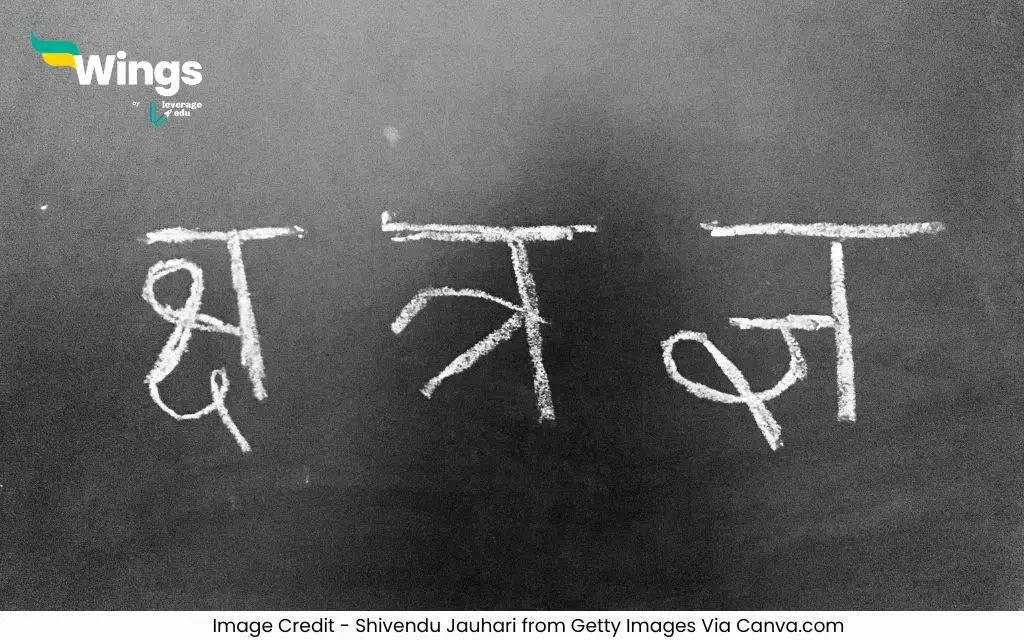 Wings
by leverage edu
क्ष त्र ज्ञ
Image Credit - Shivendu Jauhari from Getty Images Via Canva.com